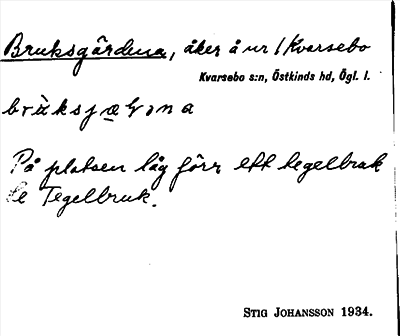 Bruksgärdena, åker å nr 1 Kvarsebo
Kvarsebo s:n, Östkinds hd, Ögl. l.
På platsen låg förr ett tegelbruk
Se Tegelbruk.
STIG JOHANSSON 1934.